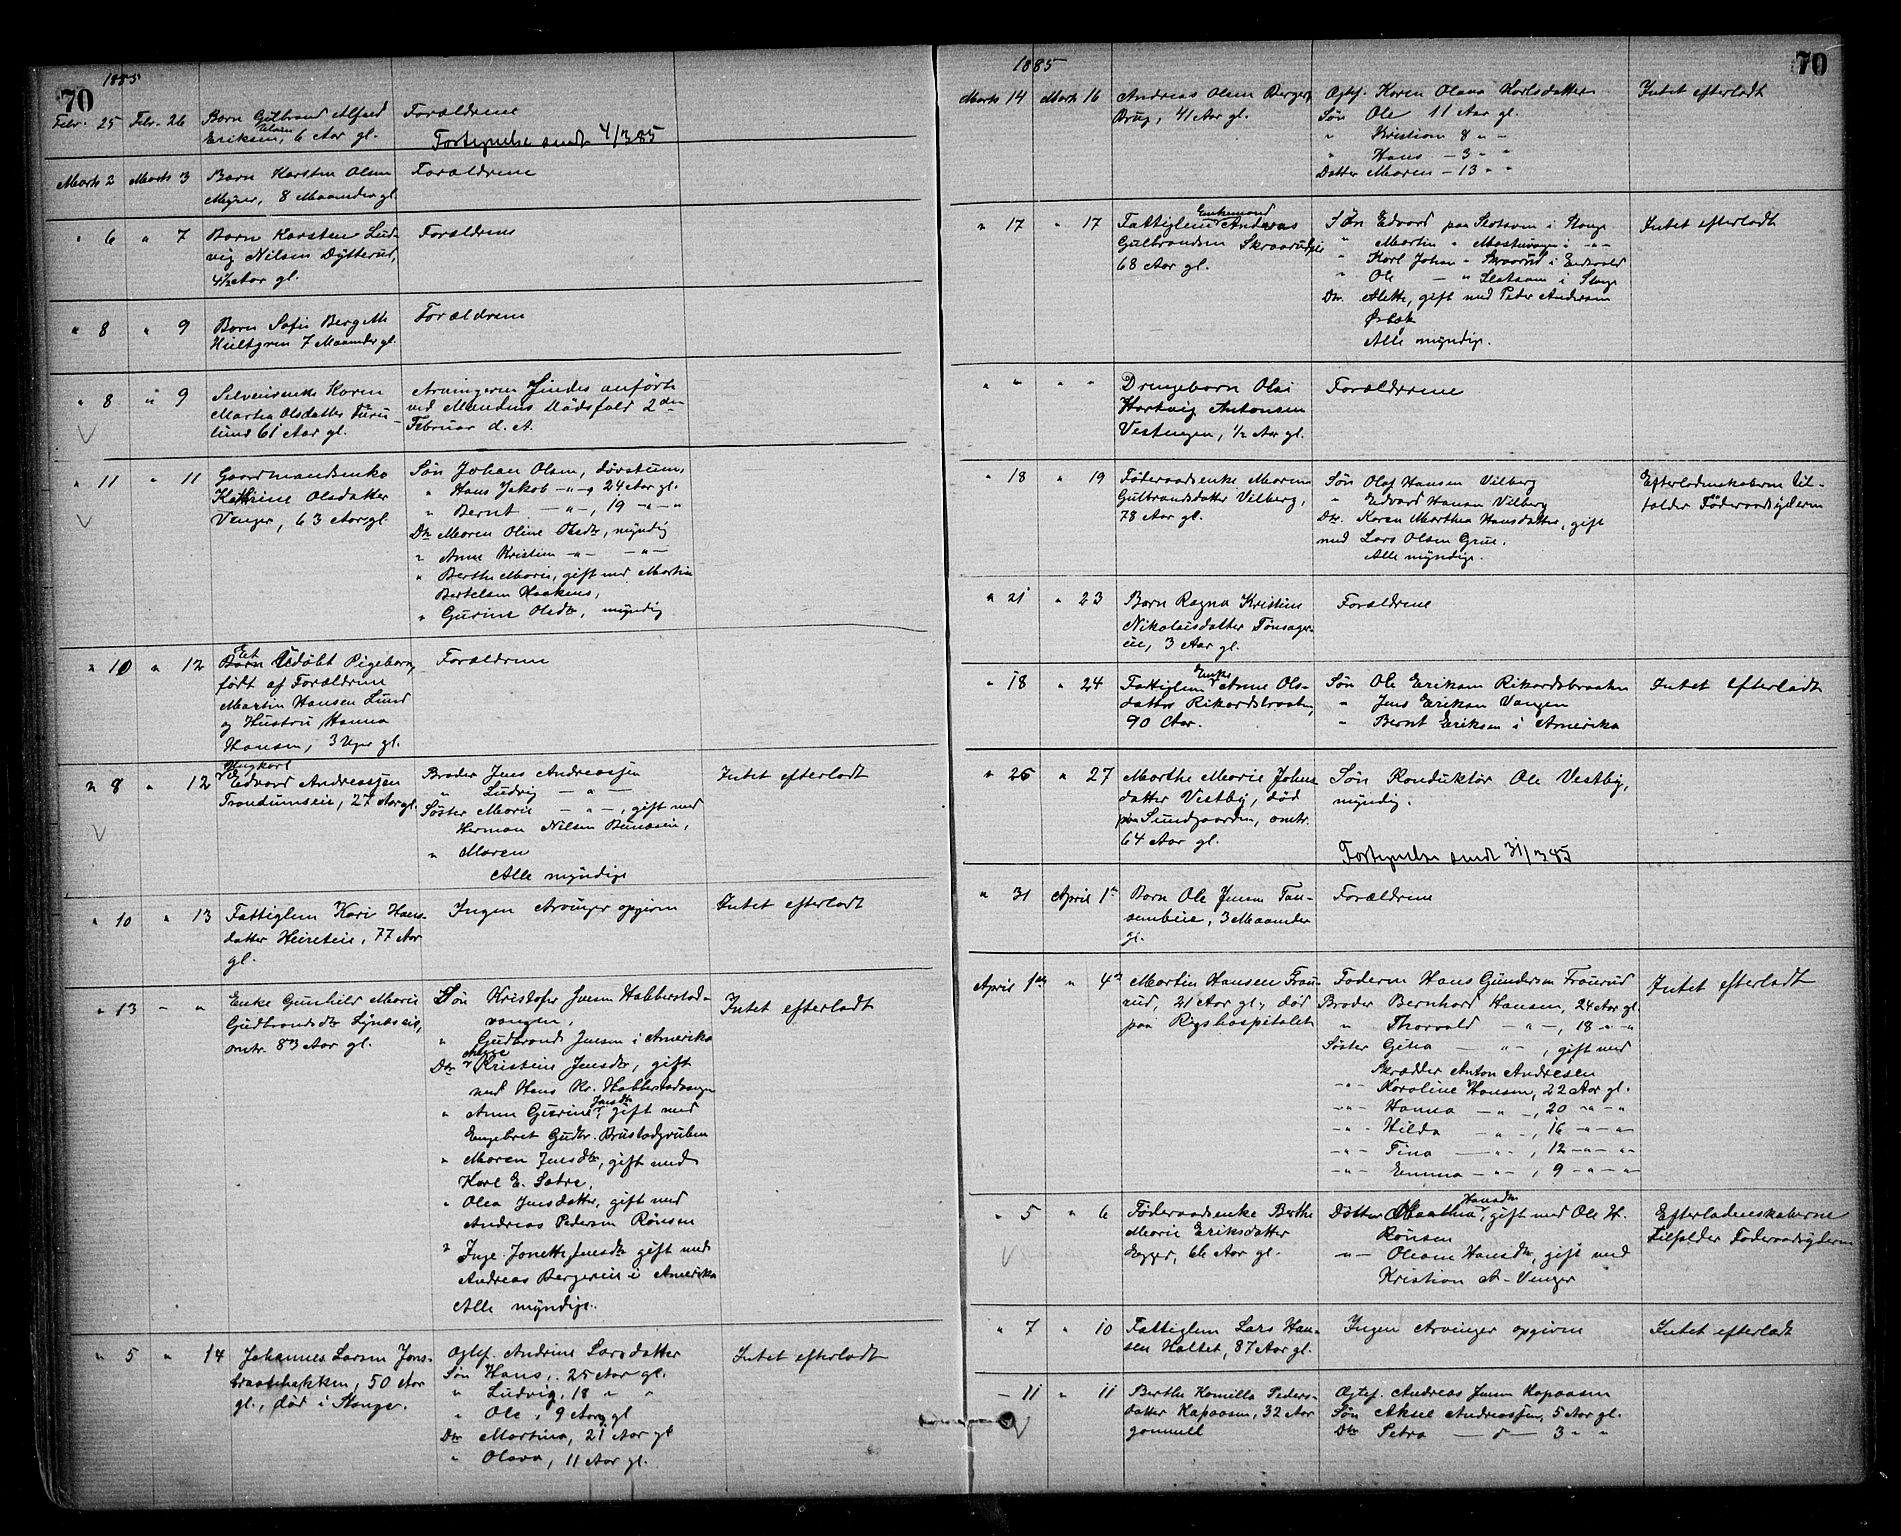 1885
70
Febr. 25 Febr. 26 Barn Gulbrand Alfred Forældrene
Eriksen, 6 Aar gl.
Fortegnelse sendt 4/3 85
Marts 2 Marts 3 Barn Karsten Olsen Forældrene
8 Maaneder gl.
" 6 " 7 Barn Karsten Lud- Forældrene
vig Nilsen Dytterud,
4½ Aar gl.
" 8 " 9 Barn Sofie Bergethe Forældrene
Hultgren 7 Maaneder gl.
" 8 " 9 Selveierenke Karen Arvingerne findes anført
Marthea Olsdatter Furu- ved Mandens Dødsfald 2den
lund 61 Aar gl. Februar d. A.
" 11 " 11 Gaardmandsenke Søn Johan Olsen,
Kathrine Olsdatter " Hans Jakob -"-, 24 Aar gl.
Venger, 63 Aar gl. " Bernt -"-, 19 -"-"
Dtr Maren Oline Olsdtr, myndig
" Anne Kristine -"- -"-
" Berthe Marie, gift med Martin
Bertelsen
" Gurine Olsdtr, myndig
" 10 " 12 Et Udøbt Pigebarn, Forældrene
født af Forældrene
Martin Hansen Lund
og Hustru Hanna
Hansen, 3 Uger gl.
" 8 " 12 Ungkarl Edvard Andreassen Broder Jens Andreassen Intet efterladt
Trondumseie, 27 Aar gl. " Ludvig -"-
Søster Marie -"-, gift med
Herman Nilsen
" Maren
Alle myndige
" 10 " 13 Fattiglem Kari Hans- Ingen Arvinger opgivne Intet efterladt
datter 77 Aar
gl.
" 13 - " Enke Gunhild Marie Søn Kristofer Jensen Habberstad- Intet efterladt
Gudbrandsdtr vangen,
omtr. 83 Aar gl. " Gudbrand Jensen i Amerika
Dtr Kristine Jensdtr, gift
med Hans Kr. Habberstadvangen
" Anne Gurine Jensdtr, gift med
Engebret Gudbr. Brustadgruben
" Maren Jensdtr, gift med
Karl E. Sætre,
" Olea Jensdatter, gift med
Andreas Pedersen Rønsen
" Inge Jonette Jensdtr gift med
Andreas Bergereie i Amerika
Alle myndige.
" 5 " 14 Johannes Larsen Jons- Ogtef. Andrine Larsdatter Intet efterladt
braatebakken, 50 Aar Søn Hans, 25 Aar gl.
gl., død i Stange. " Ludvig, 18 " "
" Ole, 9 Aar gl
Dtr Martina, 21 Aar gl
" Olava, 11 Aar gl.
1885
70
Marts 14 Marts 16 Andreas Olsen Berger, Ogtef. Karen Olava Karlsdatter Intet efterladt
Brug, 41 Aar gl. Søn Ole 11 Aar gl.
" Kristian 8 " "
" Hans - 3 " "
Datter Maren - 13 " "
" 17 " 17 Fattiglem Enkemand Andreas Søn Edvard paa i Stange Intet efterladt
Gulbrandsen Skraarudeie " Martin " i -"-
68 Aar gl. " Karl Johan " Skraarud i Eidsvold
" Ole - " i Stange
Dtr. Alette, gift med Peder Andersen
Ørbæk
Alle myndige.
" " " " Drengebarn Olai Forældrene
Hartvig Antonsen
Vestengen, ½ Aar gl.
" 18 " 19 Føderaadsenke Maren Søn Olaf Hansen Vilberg Efterladenskaberne til-
Gulbrandsdatter Vilberg, " Edvard Hansen Vilberg falder Føderaadsyderen
78 Aar gl. Dtr. Karen Marthea Hansdatter, gift
med Lars Olsen Grue.
Alle myndige.
" 21 " 23 Barn Ragna Kristine Forældrene
Nikolaisdatter Tønsager-
eie, 3 Aar gl.
" 18 " 24 Fattiglem Enke Anne Ols- Søn Ole Eriksen Rikardsbraaten Intet efterladt
datter Rikardsbraaten, " Jens Eriksen Vangen
90 Aar. " Bernt Eriksen i Amerika
" 26 " 27 Marthe Marie Johns- Søn Konduktør Ole Vestby,
datter Vestby, død myndig.
paa Sundgaarden, omtr.
64 Aar gl.
Fortegnelse sendt 31/3 85
" 31 April 1ste Barn Ole Jensen Forældrene
3 Maaneder
gl.
April 1ste " 4de Martin Hansen Frau- Faderen Hans Gundersen Fraurud Intet efterladt
rud, 21 Aar gl., død Broder Bernhard Hansen, 24 Aar gl.
paa Rigshospitalet " Thorvald -"-, 18 "-"
Søster Gina -"-, gift med
Skrædder Anton Andresen
-"- Karoline Hansen, 22 Aar gl.
-"- Hanna -"-, 20 -"-"
-"- Hilda -"-, 16 -"-"
-"- Tina -"-, 12 -"-"
-"- Emma -"-, 9 -"-"
" 5 " 6 Føderaadsenke Berthe Datter Maathea Hansdtr, gift med Ole H. Efterladenskaberne
Marie Eriksdatter Rønsen Tilfalder Føderaadsyderen
66 Aar gl. -"- Oleane Hansdtr, gift med
Kristian A. Venger
" 7 " 10 Fattiglem Lars Han- Ingen Arvinger opgivne Intet efterladt
sen Holtet, 87 Aar gl.
- 11 " 11 Berthe Kamilla Peders- Ogtef. Andreas Jensen Kapaasen
datter Kapaasen, 32 Aar Søn Aksel Andreassen, 5 Aar gl.
gammel Dtr Petra - " - 3 " "